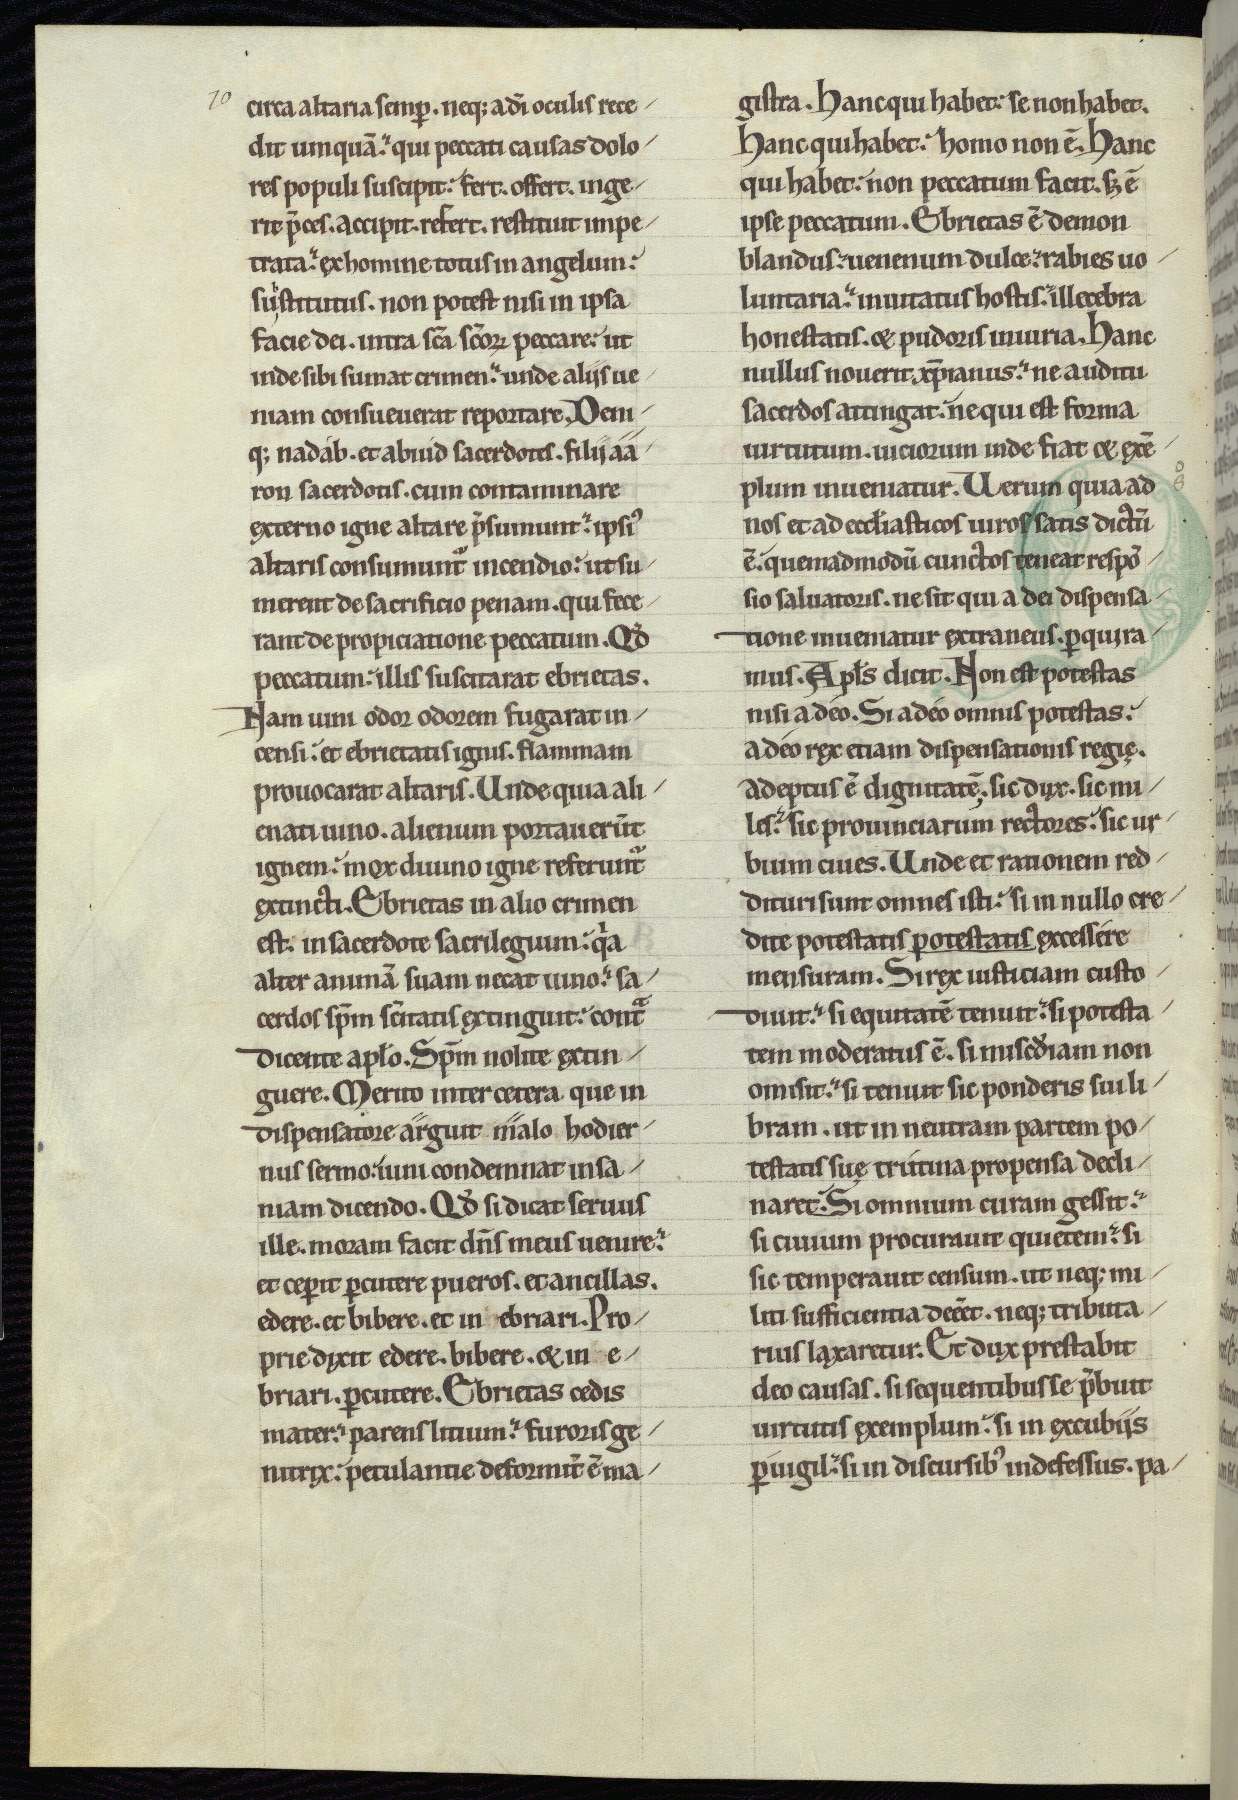 70
circa altaria semꝑ. neq; a dī oculis rece
dit unquā. qui peccati causas dolo
res populi suscipit. fert. offert. inge
rit p̄ces. accipit. refert. restituit impe
trata. ex homine totus in angelum.
sustitutus. non potest nisi in ipsa
facie dei. intra sc̄a sc̄oꝝ peccare. ut
inde sibi sumat crimen. unde alijs ue
niam consueuerat reportare. Deni
q; nadab. et abiud sacerdotes. filij aa
ron sacerdotis. cum contaminare
externo igne altare p̄sumunt. ipsiꝰ
altaris consumunt᷑ incendio. ut su
merent de sacrificio penam. qui fece
rant de propiciatione peccatum. Qđ
peccatum. illis suscitarat ebrietas.
Nam uini odor odorem fugarat in
censi. et ebrietatis ignis. flammam
prouocarat altaris. Unde quia ali
enati uino. alienum portauerūt
ignem. mox diuino igne referunt᷑
extincti. Ebrietas in alio crimen
est. in sacerdote sacrilegium. qͥa
alter animā suam necat uino. sa
cerdos sp̄m sc̄itatis extinguit. contᷓ
dicente apl̄o. Sp̄m nolite extin
guere. Merito inter cetera que in
dispensatore arguit malo hodier
nus sermo. uini condemnat insa
niam dicendo. Qđ si dicat seruus
ille. moram facit dn̄s meus uenire.
et ceperit ꝑcutere pueros. et ancillas.
edere. et bibere. et in ebriari. Pro
prie dixit edere. bibere. & in e
briari. ꝑcutere. Ebrietas cedis
mater. parens litium. furoris ge
nitrix. petulantie deformit̄ ē ma
gistra. Hanc qui habet. se non habet.
Hanc qui habet. homo non ē. Hanc
qui habet. non peccatum facit. sꝫ ē
ipse peccatum. Ebrietas ē demon
blandus. uenenum dulce. rabies uo
luntaria. inuitatus hostis. illecebra
honestatis. & pudoris iniuria. Hanc
nullus nouerit xp̄ianus. ne auditu
sacerdos attingat. ne qui est forma
uirtutum. uiciorum inde fiat & exē
plum inueniatur. Uerum quia ad
nos et ad eccl̄iasticos uiros satis dictū
ē. quemadmodū cunctos teneat respō
sio saluatoris. ne sit qui a dei dispensa
tione inueniatur extraneus. ꝑquira
mus. Apl̄s dicit. Non est potestas
nisi a deo. Si a deo omnis potestas.
a deo rex etiam dispensationis regię.
adeptus ē dignitatē. sic dux. sic mi
les. sic prouinciarum rectores. sic ur
bium ciues. Unde et rationem red
dituri sunt omnes isti. si in nullo cre
dite potestatis potestatis excessere
mensuram. Si rex iusticiam custo
diuit. si equitatē tenuit. si potesta
tem moderatus ē. si mise͛diam non
omisit. si tenuit sic ponderis sui li
bram. ut in neutram partem po
testatis suę trutina propensa decli
naret. Si omnium curam gessit.
si ciuium procurauit quietem. si
sic temperauit censum. ut neq; mi
liti sufficientia deēet. neq; tributa
rius laxaretur. Et dux prestabit
deo causas. si sequentibus se p̄buit
uirtutis exemplum. si in excubijs
ꝑuigil. si in discursibꝰ indefessus. pa